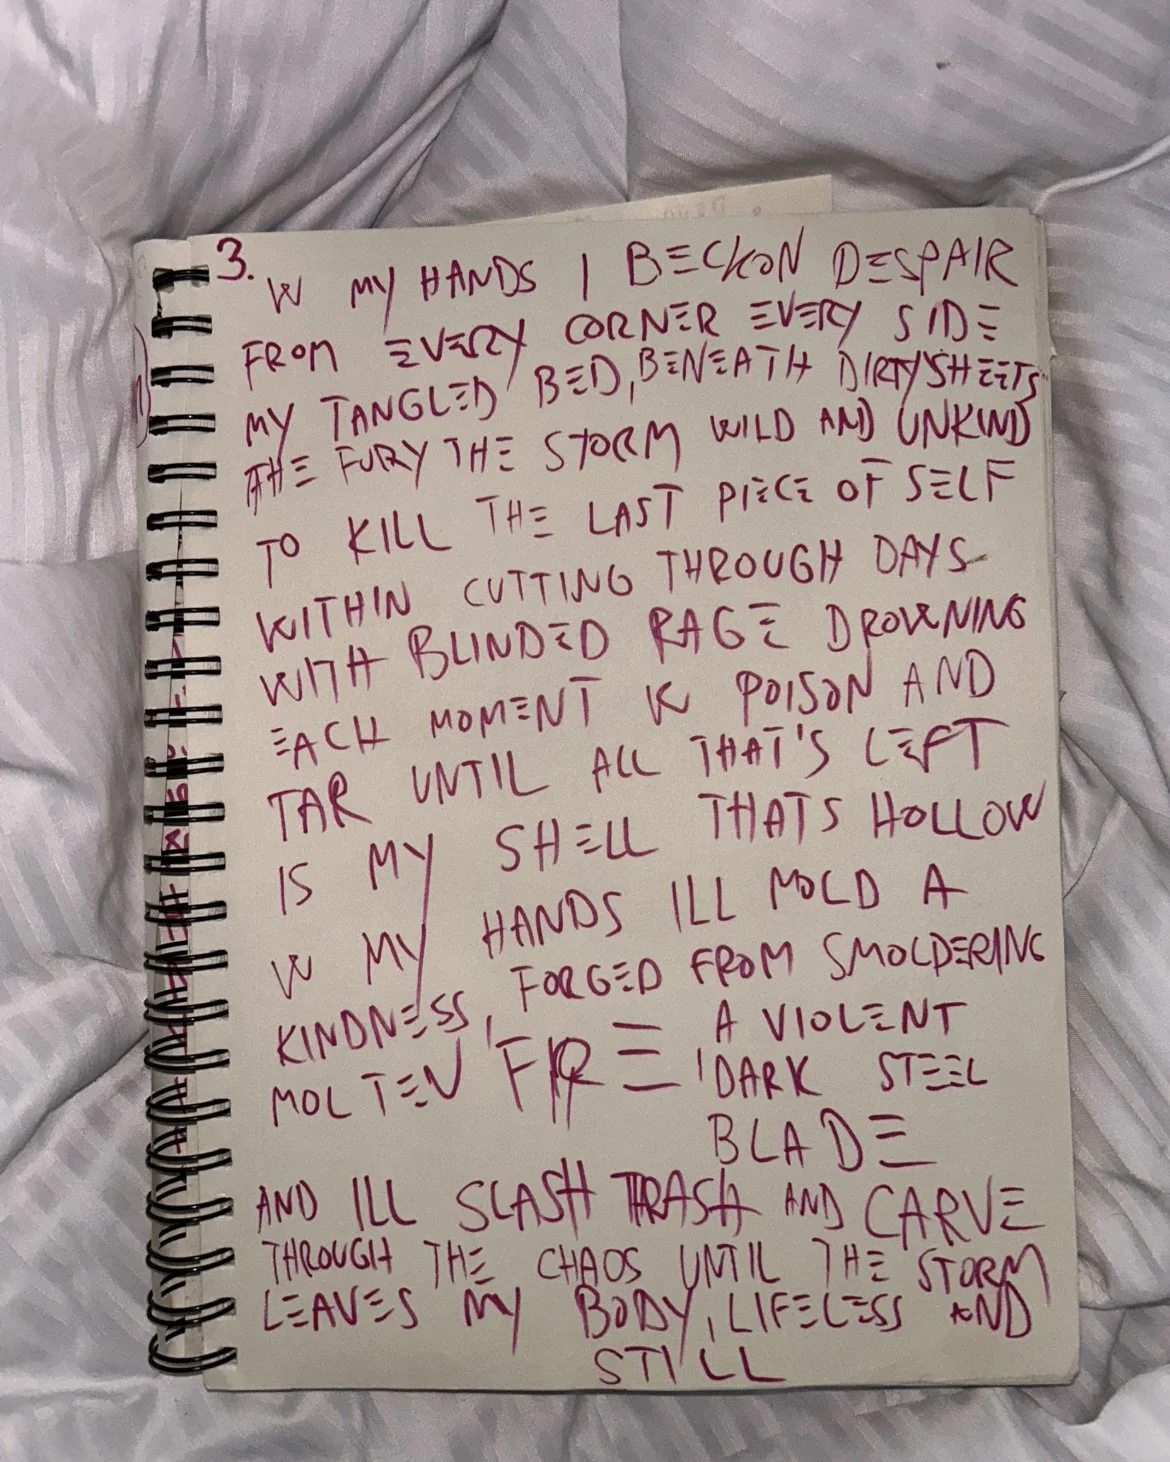 3.
W MY HANDS I BECKON DESPAIR
FROM EVERY CORNER EVERY SIDE
MY TANGLED BED, BENEATH DIRTY SHEETS
THE FURY THE STORM WILD AND UNKIND
TO KILL THE LAST PIECE OF SELF
WITHIN CUTTING THROUGH DAYS
WITH BLINDED RAGE DROWNING
EACH MOMENT IN POISON AND
TAR UNTIL ALL THAT'S LEFT
IS MY SHELL THATS HOLLOW
W MY HANDS ILL MOLD A
KINDNESS, FORGED FROM SMOLDERING
MOLTEN FIRE, A VIOLENT
DARK STEEL
BLADE
AND ILL SLASH THRASH AND CARVE
THROUGH THE CHAOS UNTIL THE STORM
LEAVES MY BODY, LIFELESS AND
STILL